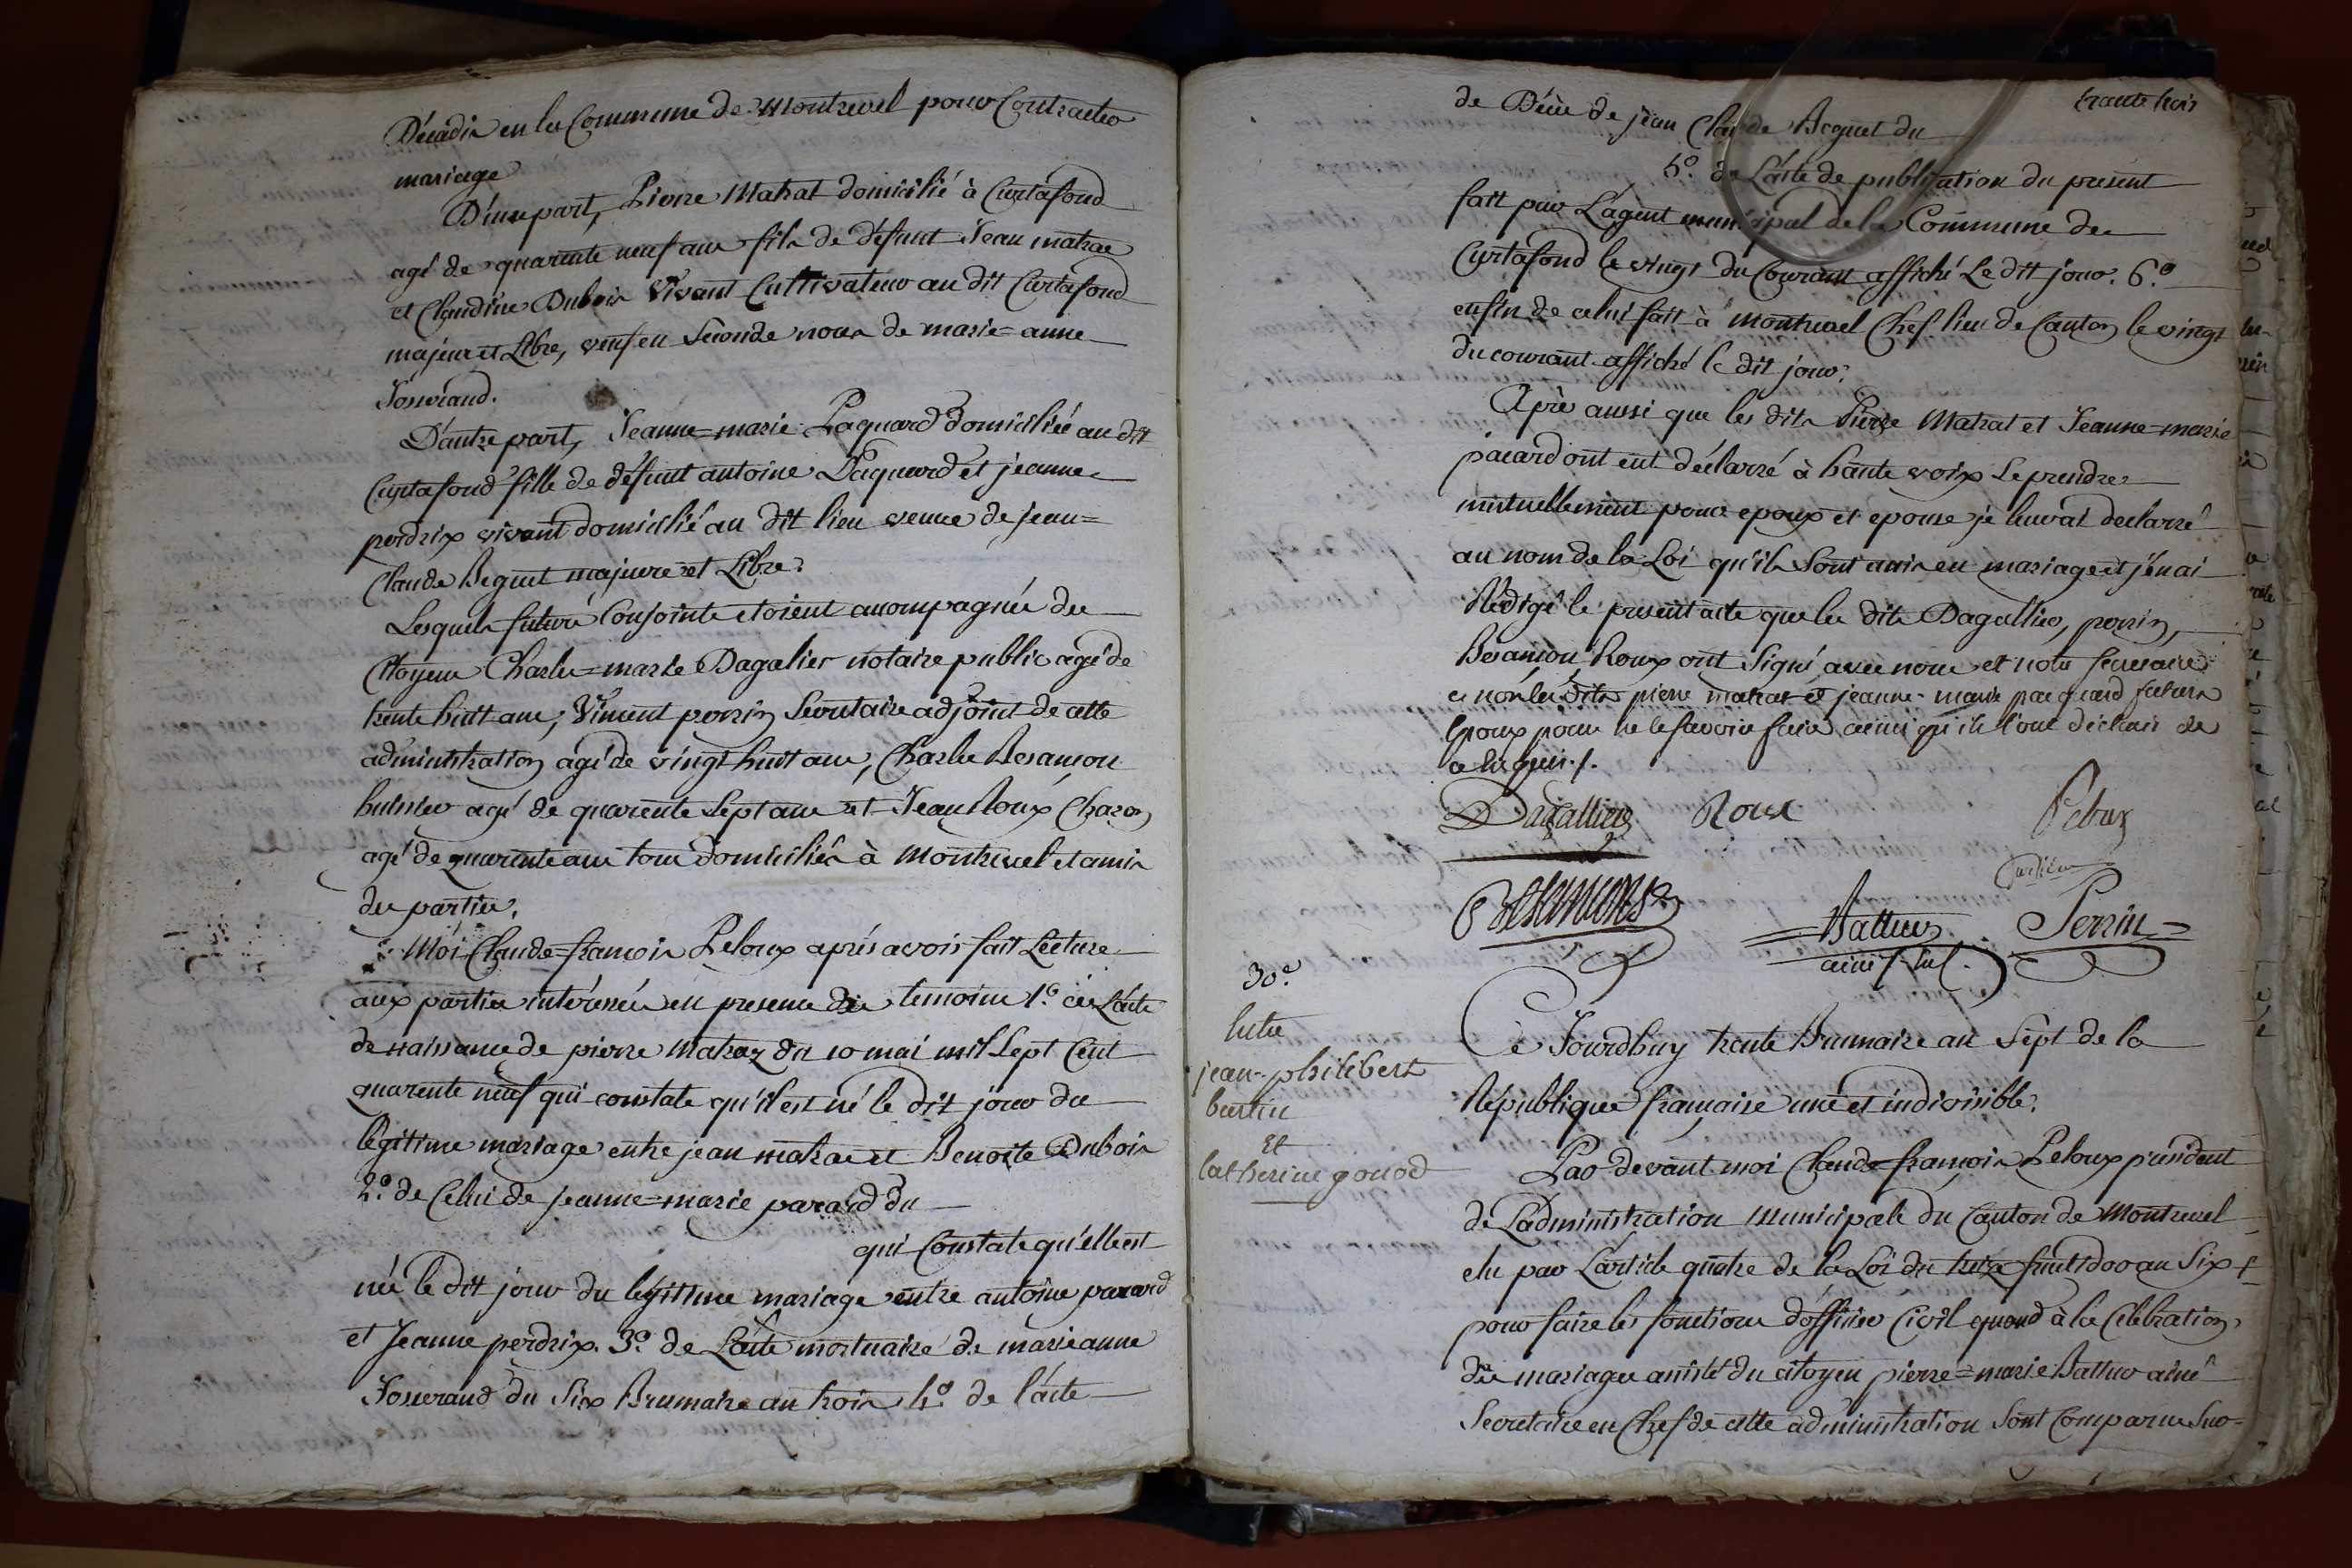 Décadis en la Commune de Montrevel pour Contracter
mariage
D'une part, Pierre Mahat domicilié à Curtafond
agé de quarente neuf ans fils de défunt Jean mahae
et Claudine Dubois vivant Cultivateur au dit Curtafond
majeur et Libre, veuf en Seconde noces de marie=anne
Josserand.
D'autre part, Jeanne=marie Paquard domiciliée au dit
Curtafond fille de défunt antoine Paquard et jeanne
perdrix vivant domicilié au dit lieu veuve de jean=
Claude Beguet majeure et Libre.
Lesquels futurs Conjoints etoient accompagnés des
Citoyens Charles=marie Dagalier notaire public agé de
trente huit ans, Vincent perrin Secretaire adjoint de cette
administration agé de vingt huit ans, Charles Besançon
huissier agé de quarente Sept ans et Jean Roux Charon
agé de quarente ans tous domiciliés à Montrevel et amis
des parties.
Moi Claude=françois Peloux après avoir fait Lecture
aux parties intéressées en presence des temoins 1.º de L'acte
de naissance de pierre Mahaz du 10 mai mil Sept Cent
quarente neuf qui constate qu'il est né le dit jour du
légitime mariage entre jean mahae et Benoite Dubois
2.º de Celui de jeanne=marie pacard du
qui Constate qu'elle est
née le dit jour du légitime mariage entre antoine pacard
et Jeanne perdrix. 3.º de L'acte mortuaire de marieanne
Josserand du Six Brumaire an trois 4.º de l'acte
trente trois
de Décès de jean Claude Beguet du
5.º de L'acte de publication du present
fait par L'agent municipal de la Commune de
Curtafond le vingt du Courant affiché Le dit jour. 6.º
enfin de celui fait à Montrevel Chef lieu de Canton le vingt
du courant affiché le dit jour.
Après aussi que les dits Pierre Mahat et Jeanne=marie
pacard ont eut déclarré à haute voix Se prendre
mutuellement pour epoux et epouse je leur ai declarré
au nom de la Loi qu'ils Sont unis en mariage et j'en ai
Rédigé le present acte que les dits Dagallier, perrin,
Besançon, Roux ont Signé avec nous et notre secretaire
et non les dits pierre mahat et jeanne-marie pacquard futurs
Epoux pour ne le savoir faire ainsi qu'ils l'ont déclaré de
ce requis./.
Dagallier Roux Peloux
president
Besançon Battur Perrin
ainé
30.e
Entre
jean-philibert
burtin
Et
Catherine gonod
Ce Jourdhuy trente Brumaire an Sept de la
République française une et indivisible.
Par devant moi Claude françois Peloux president
de L'administration Municipale du Canton de Montrevel
elu par L'article quatre de la Loi du treize fructidor an Six
pour faire les fonctions d'officier Civil quand à la Célébration
des mariages assisté du citoyen pierre=marie Battur ainé
Secretaire en Chef de cette administration Sont Comparus Suo-